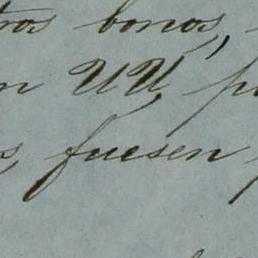 tros bonos,
n UU, p
s, fuesen